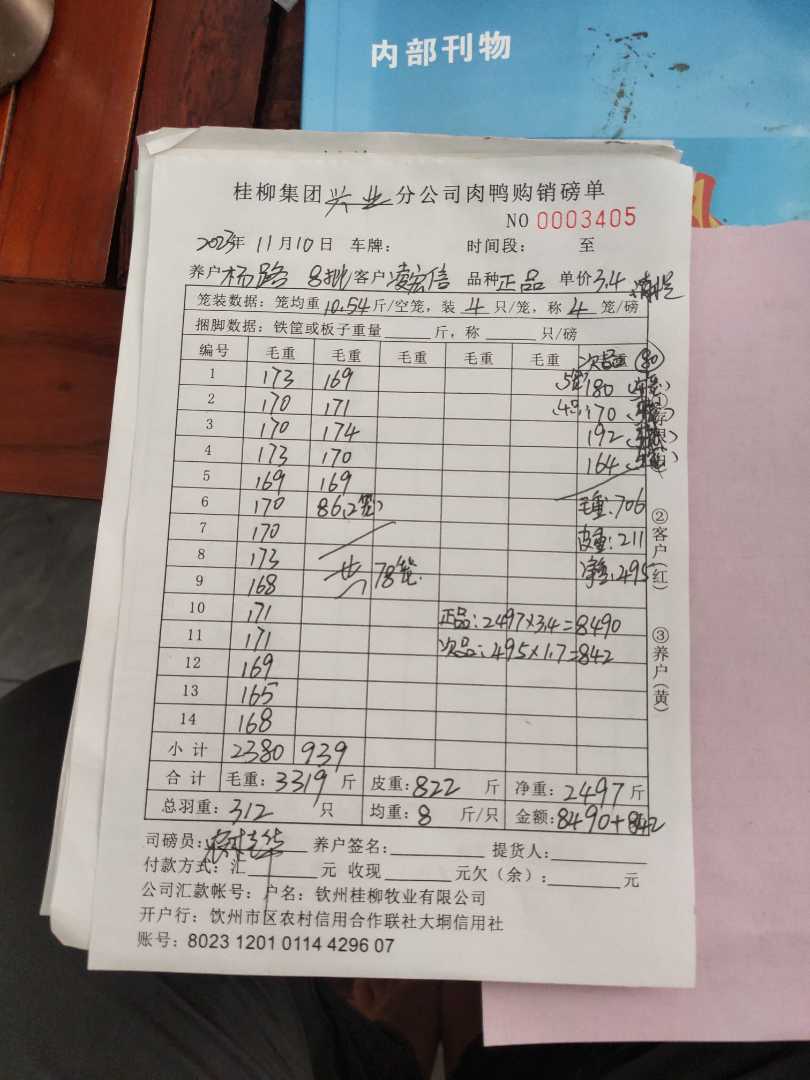 内部刊物
桂柳集团兴业分公司肉鸭购销磅单
NO 0003405
2023年11月10日 车牌: 时间段: 至
养户杨路 8批 客户凌宏信 品种正品 单价3.4
笼装数据: 笼均重10.54斤/空笼, 装4只/笼, 称4笼/磅
捆脚数据: 铁筐或板子重量 斤, 称 只/磅
编号 毛重 毛重 毛重 毛重 毛重 次品重 80
1 173 169 (5笼) 180
2 170 171 170
3 170 174 192
4 173 170 164
5 169 169
6 170 86(2笼) 毛重:706
7 170 皮重:211
8 173 共78笼 净重:495
9 168
10 171 正品:2497×3.4=8490
11 171 次品:495×1.7=842
12 169
13 165
14 168
小计 2380 939
合计 毛重:3319斤 皮重:822斤 净重:2497斤
总羽重:312只 均重:8斤/只 金额:8490+842
司磅员: 养户签名: 提货人:
付款方式:汇 元 收现 元欠(余): 元
公司汇款帐号: 户名: 钦州桂柳牧业有限公司
开户行: 钦州市区农村信用合作联社大垌信用社
账号: 8023 1201 0114 4296 07
②客户(红)
③养户(黄)